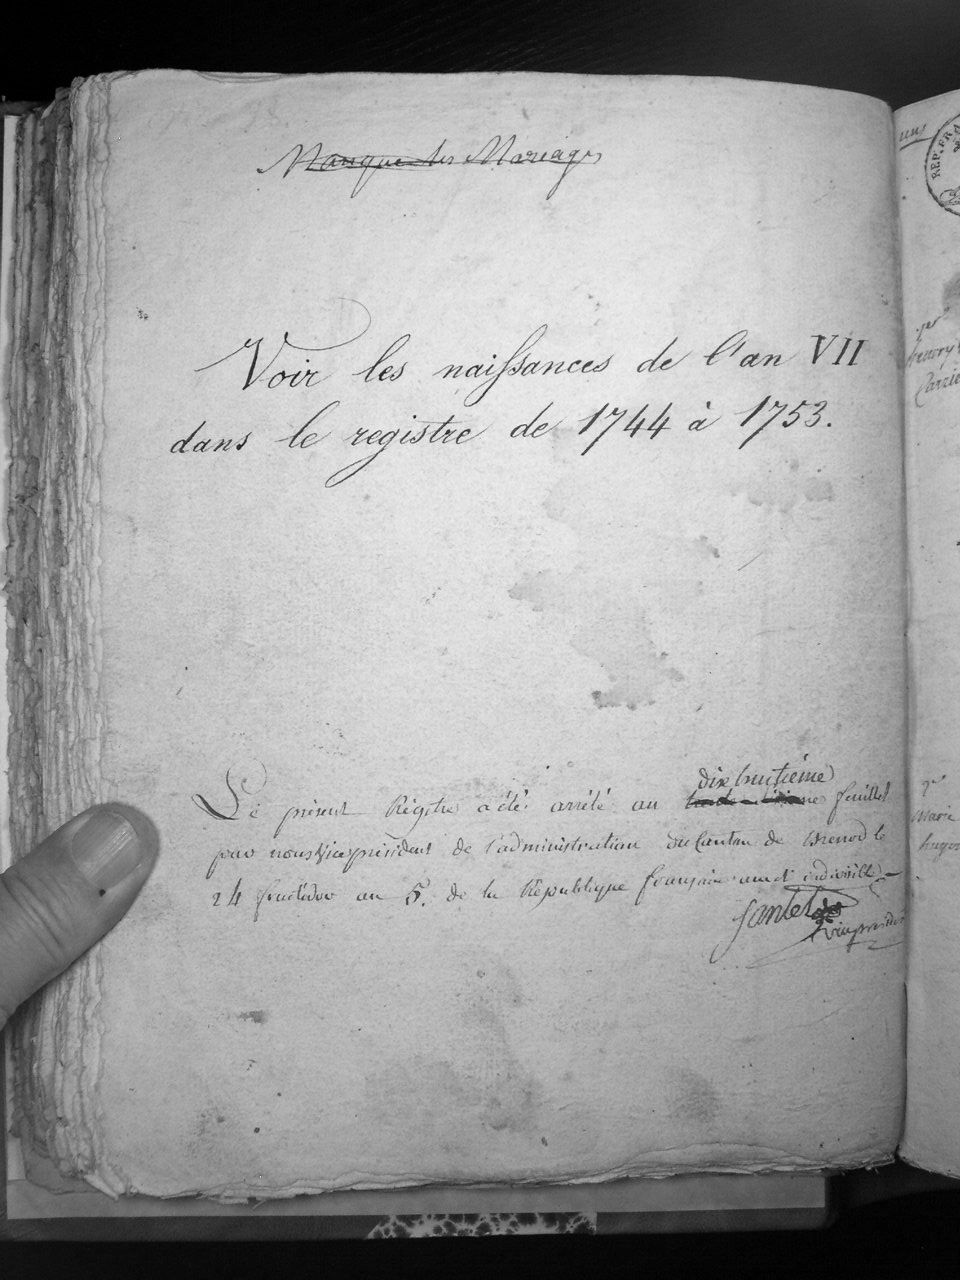 Manque des Mariages
Voir les naissances de l'an VII
dans le registre de 1744 à 1753.
dix huitième
Le présent Régitre a été arrêté au feuillet
par nous vice président de l'administration du Canton de Brenod le
24 fructidor an 5. de la République française une et indivisible
Santel
vice président
REP. FRA
Marie